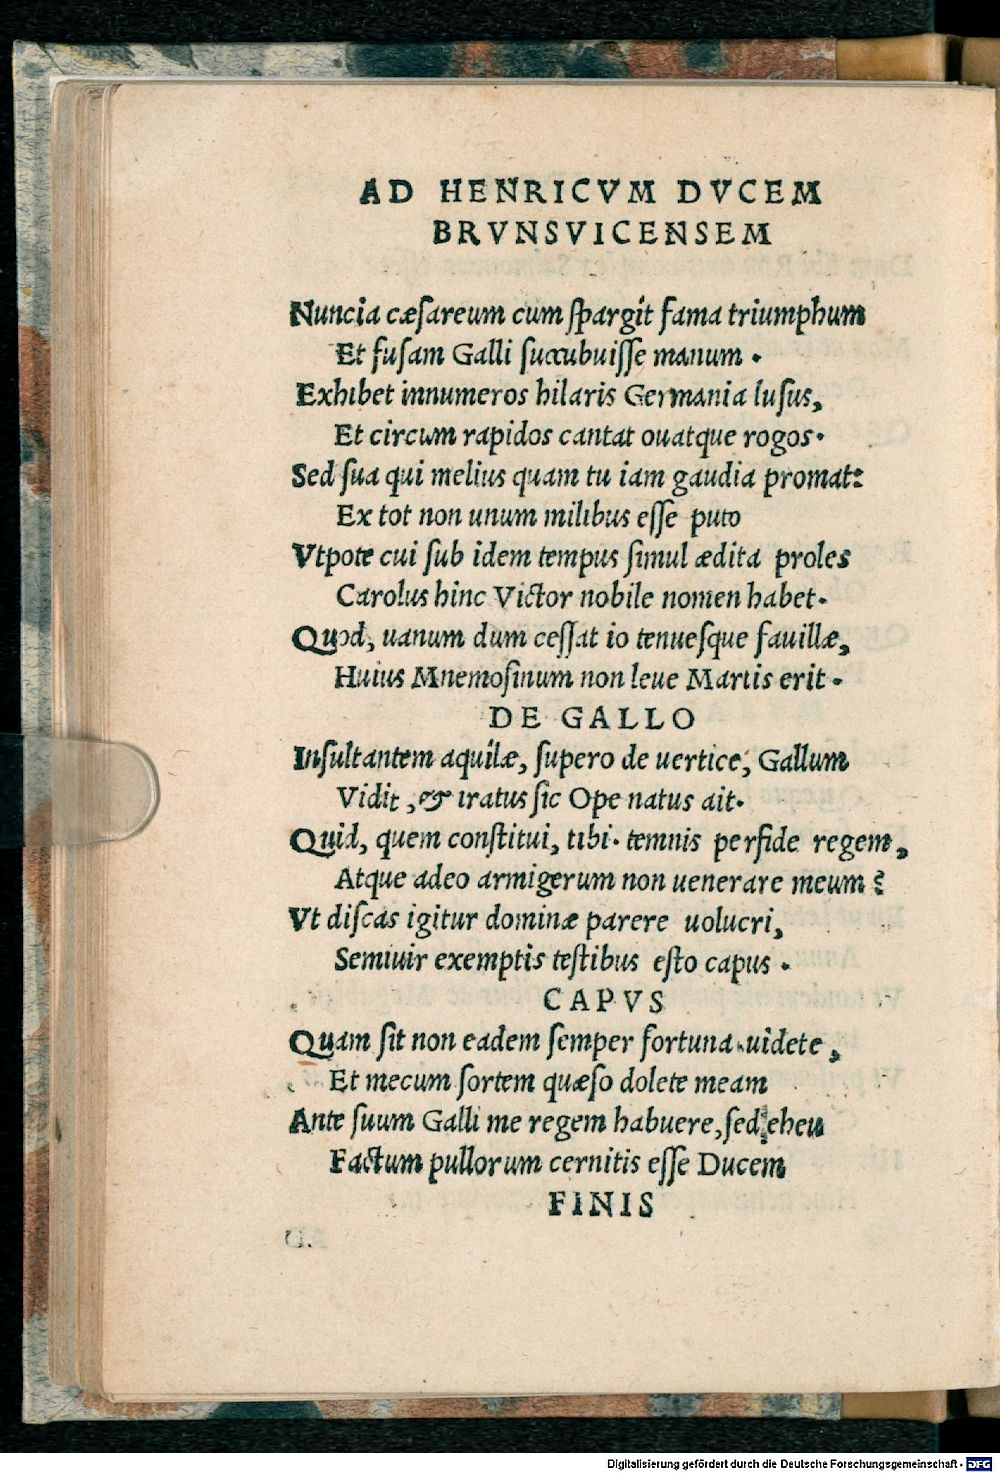 AD HENRICVM DVCEM
BRVNSVICENSEM
Nuncia cæſareum cum ſpargit fama triumphum
Et fuſam Galli succubuiſſe manum .
Exhibet innumeros hilaris Germania luſus,
Et circum rapidos cantat ouatque rogos.
Sed ſua qui melius quam tu iam gaudia promat:
Ex tot non unum milibus eſſe puto
Vtpote cui ſub idem tempus ſimul ædita proles
Carolus hinc Victor nobile nomen habet.
Quod, uanum dum ceſſat io tenueſque fauillæ,
Huius Mnemoſinum non leue Martis erit .
DE GALLO
Inſultantem aquilæ, ſupero de uertice, Gallum
Vidit , & iratus ſic Ope natus ait.
Quid, quem conſtitui, tibi. temnis perfide regem,
Atque adeo armigerum non uenerare meum ?
Vt diſcas igitur dominæ parere uolucri,
Semiuir exemptis teſtibus eſto capus .
CAPVS
Quam ſit non eadem ſemper fortuna uidete ,
Et mecum ſortem quæſo dolete meam
Ante ſuum Galli me regem habuere, ſed eheu
Factum pullorum cernitis eſſe Ducem
FINIS
Digitalisierung gefördert durch die Deutsche Forschungsgemeinschaft - DFG